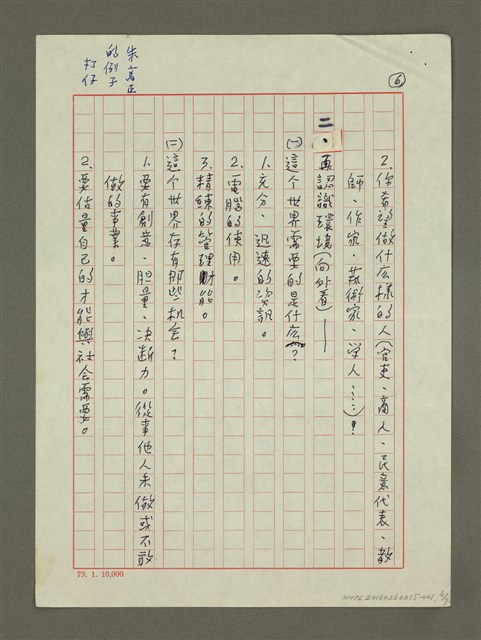 ⑥
2、你希望做什么樣的人(官吏、商人、民意代表、教
師、作家、藝術家、学人……)?
二、再認識環境(向外看)——
(一)這个世界需要的是什么?
1、充分、迅速的資訊。
2、電腦的使用。
3、精練的管理財能。
(二)這个世界存有那些机会?
1、要有創意、胆量、决断力。從事他人未做或不敢
做的事業。
2、要估量自己的才能與社会需要。
朱高正
的例子
打仔
79. 1. 10,000